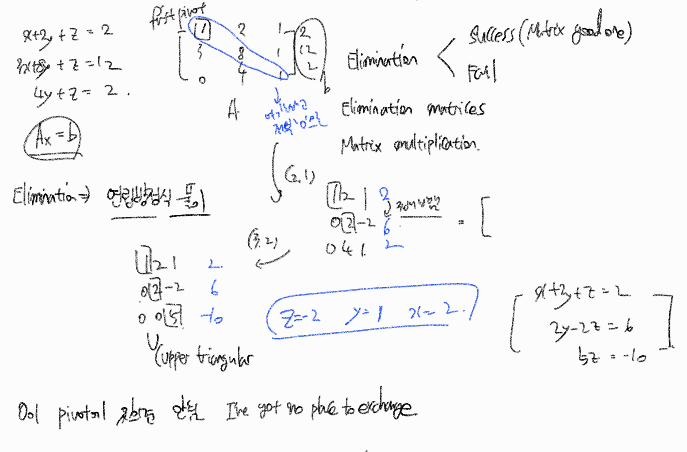 x+2y+z = 2
3x+8y+z = 12
4y+z = 2.
Ax = b
first pivot
1 2 1 2
3 8 1 12
0 4 1 2
A
b
Elimination
Success (Matrix good one)
Fail
Elimination matrices
Matrix multiplication.
Elimination ⇒ 연립방정식 풀이
(2,1)
1 2 1 2
0 2 -2 6
0 4 1 2
= [
(3,2)
1 2 1 2
0 2 -2 6
0 0 5 -10
U (upper triangular
z=-2 y=1 x=2.
x+2y+z = 2
2y-2z = 6
5z = -10
0이 pivot이 안됨 I've got no place to exchange